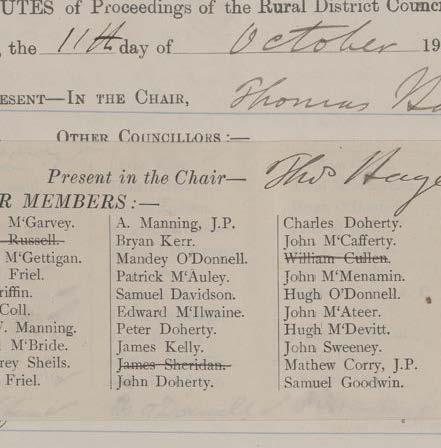 UTES of Proceedings of the Rural District Counci
, the 11th day of October 19
ESENT—IN THE CHAIR, Thomas
OTHER COUNCILLORS :—
Present in the Chair— Thos
R MEMBERS :—
M'Garvey.
Russell.
M'Gettigan.
Friel.
riffin.
Coll.
W. Manning.
M'Bride.
rey Sheils.
Friel.
A. Manning, J.P.
Bryan Kerr.
Mandey O'Donnell.
Patrick M'Auley.
Samuel Davidson.
Edward M'Ilwaine.
Peter Doherty.
James Kelly.
James Sheridan.
John Doherty.
Charles Doherty.
John M'Cafferty.
William Cullen.
John M'Menamin.
Hugh O'Donnell.
John M'Ateer.
Hugh M'Devitt.
John Sweeney.
Mathew Corry, J.P.
Samuel Goodwin.